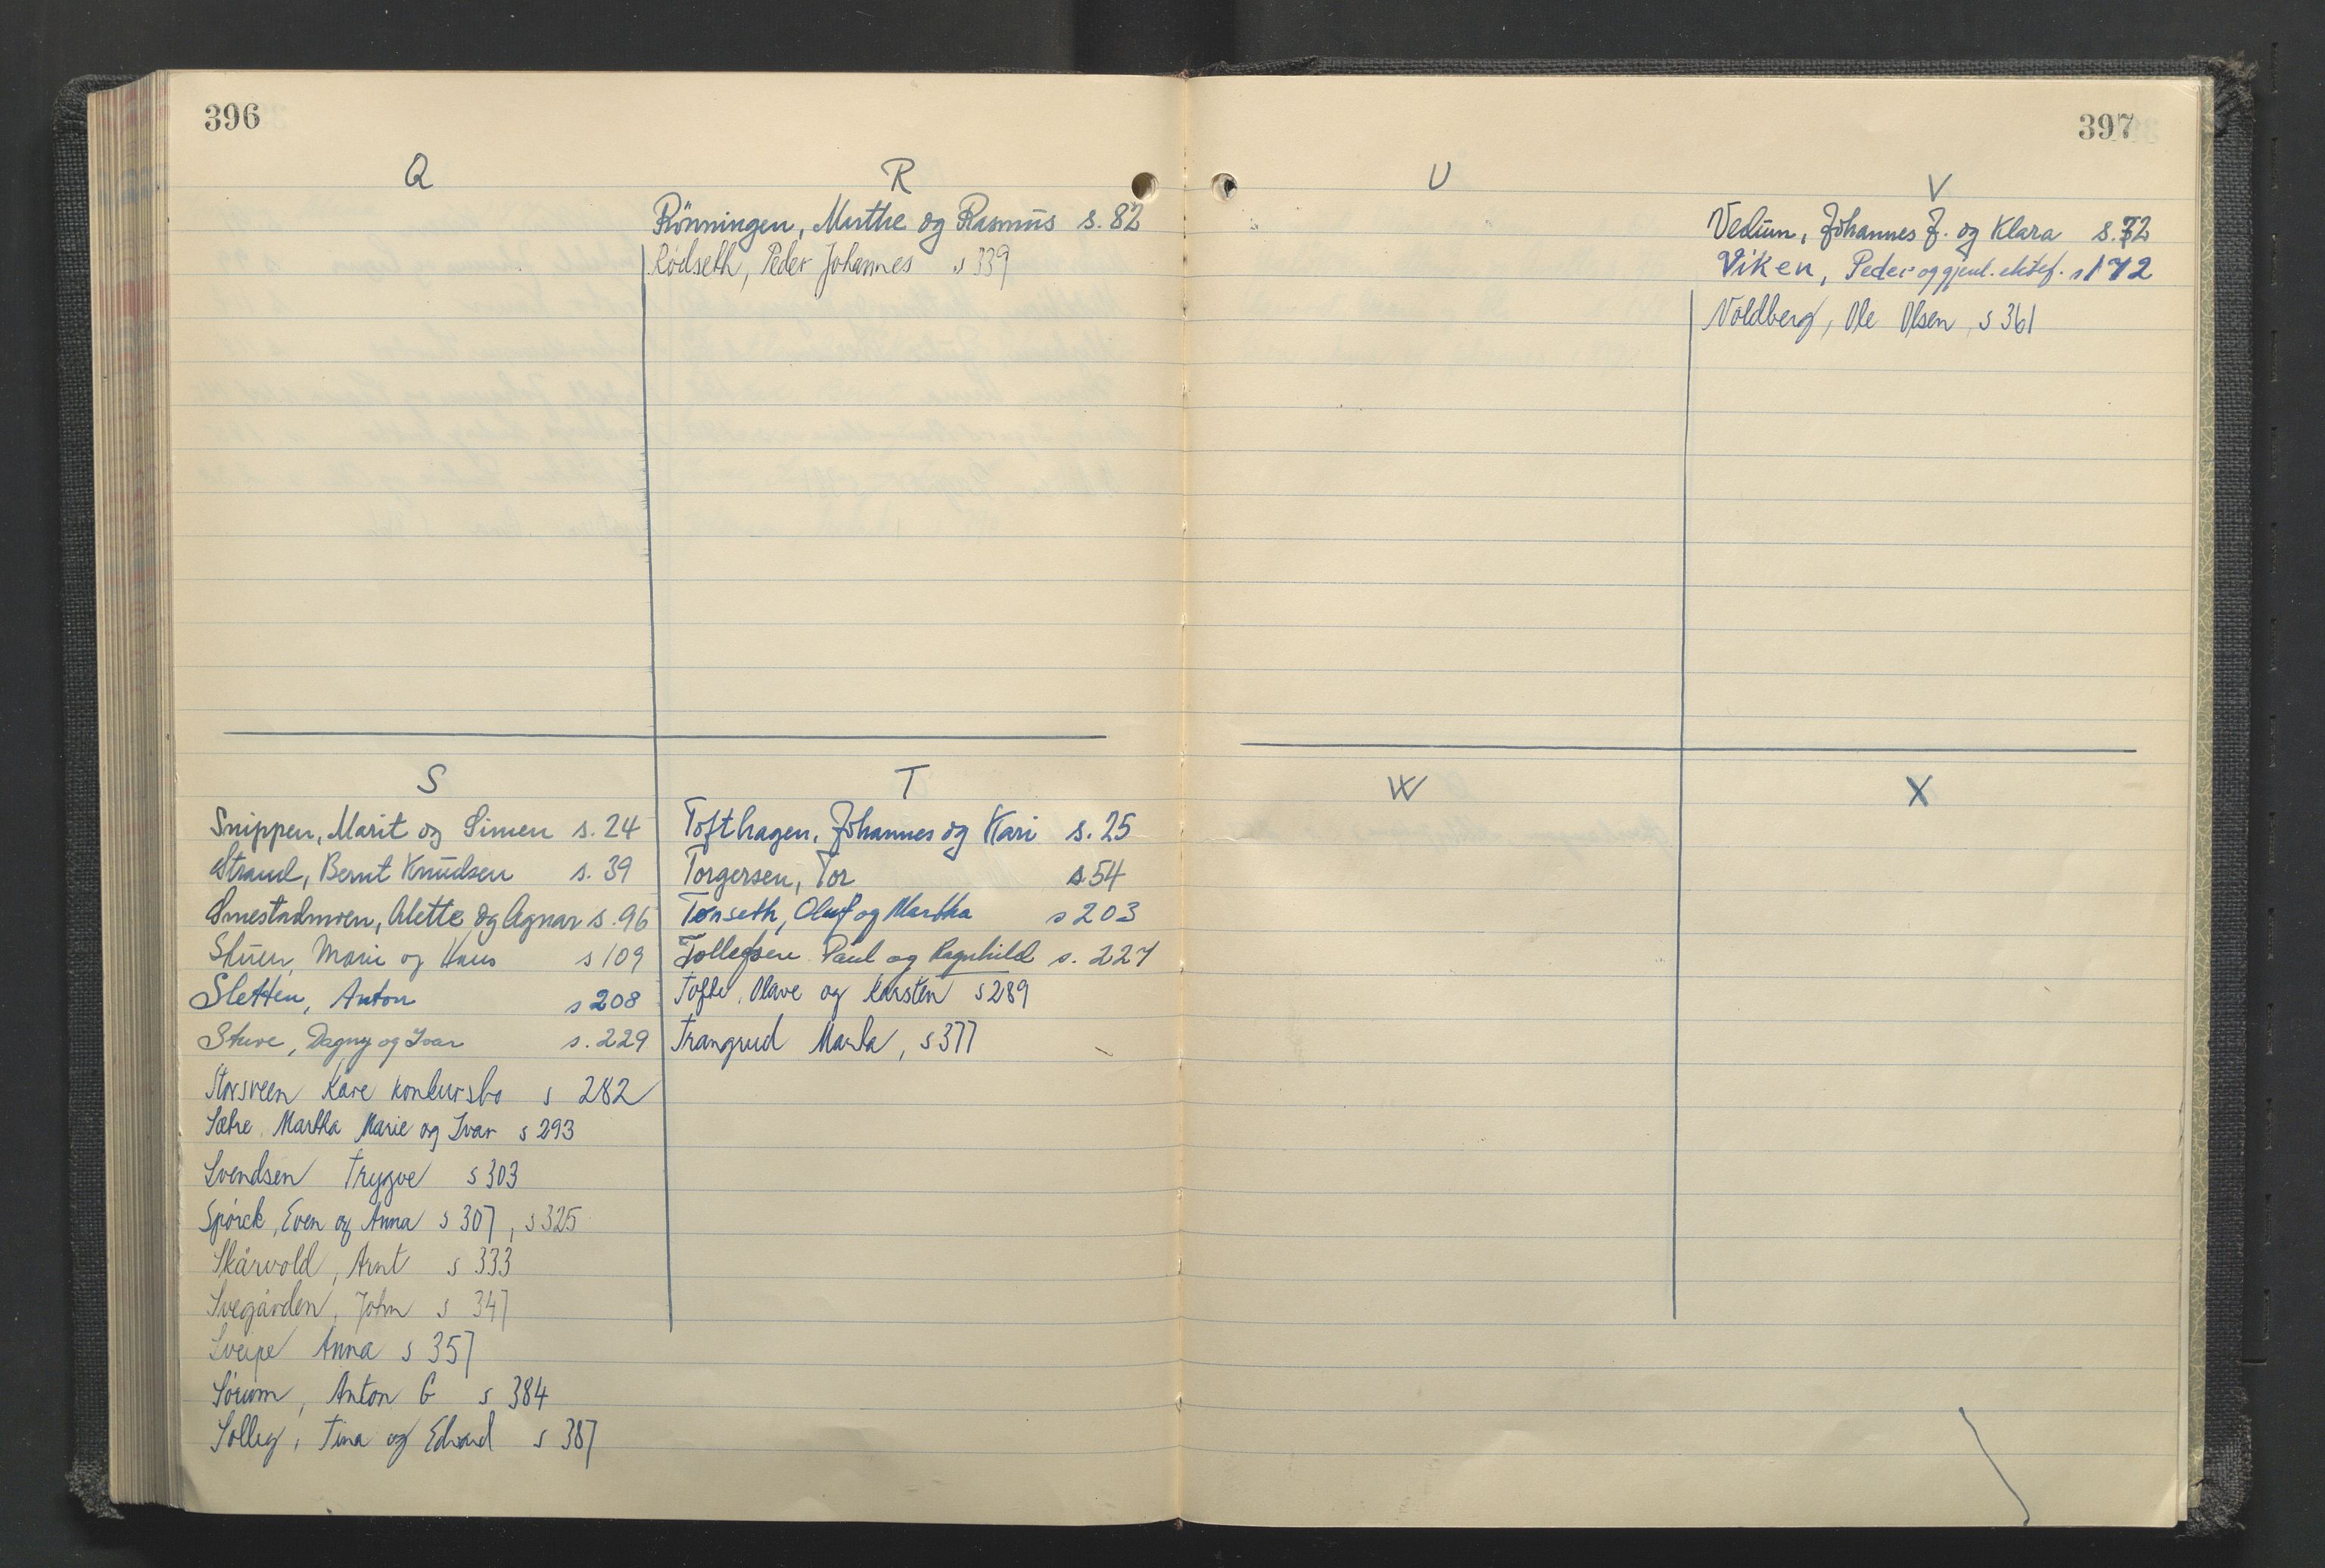 396
Q
R
Rönningen, Marthe og Rasmus s. 82
Rödseth, Peder Johannes s 339
S
Snippen, Marit og Simen s. 24
Strand, Bernt Knudsen s. 39
Smestadmoen, Alette og Agnar s. 96
Stuen, Marie og Hans s 109
Sletten, Anton s 208
Stuve, Dagny og Ivar s. 229
Storsveen Kåre konkursbo s 282
Sætre Martha Marie og Ivar s 293
Svendsen Trygve s 303
Spörck, Even og Anna s 307, s 325
Skårvold, Arnt s 333
Svegården, John s 347
Sveipe Anna s 357
Sörum, Anton G s 384
Solleg, Tina og Edvard s 387
T
Tofthagen, Johannes og Kari s. 25
Torgersen, Tor s 54
Tønseth, Oluf og Martha s 203
Tollefsen Paul og Ragnhild s. 227
Tofte, Olave og Karsten s 289
Trangrud Marta, s 377
397
U
V
Vedum, Johannes J. og Klara s. 72
Viken, Peder og gjenl. ektef. s 172
Voldberg, Ole Olsen, s 361
W
X